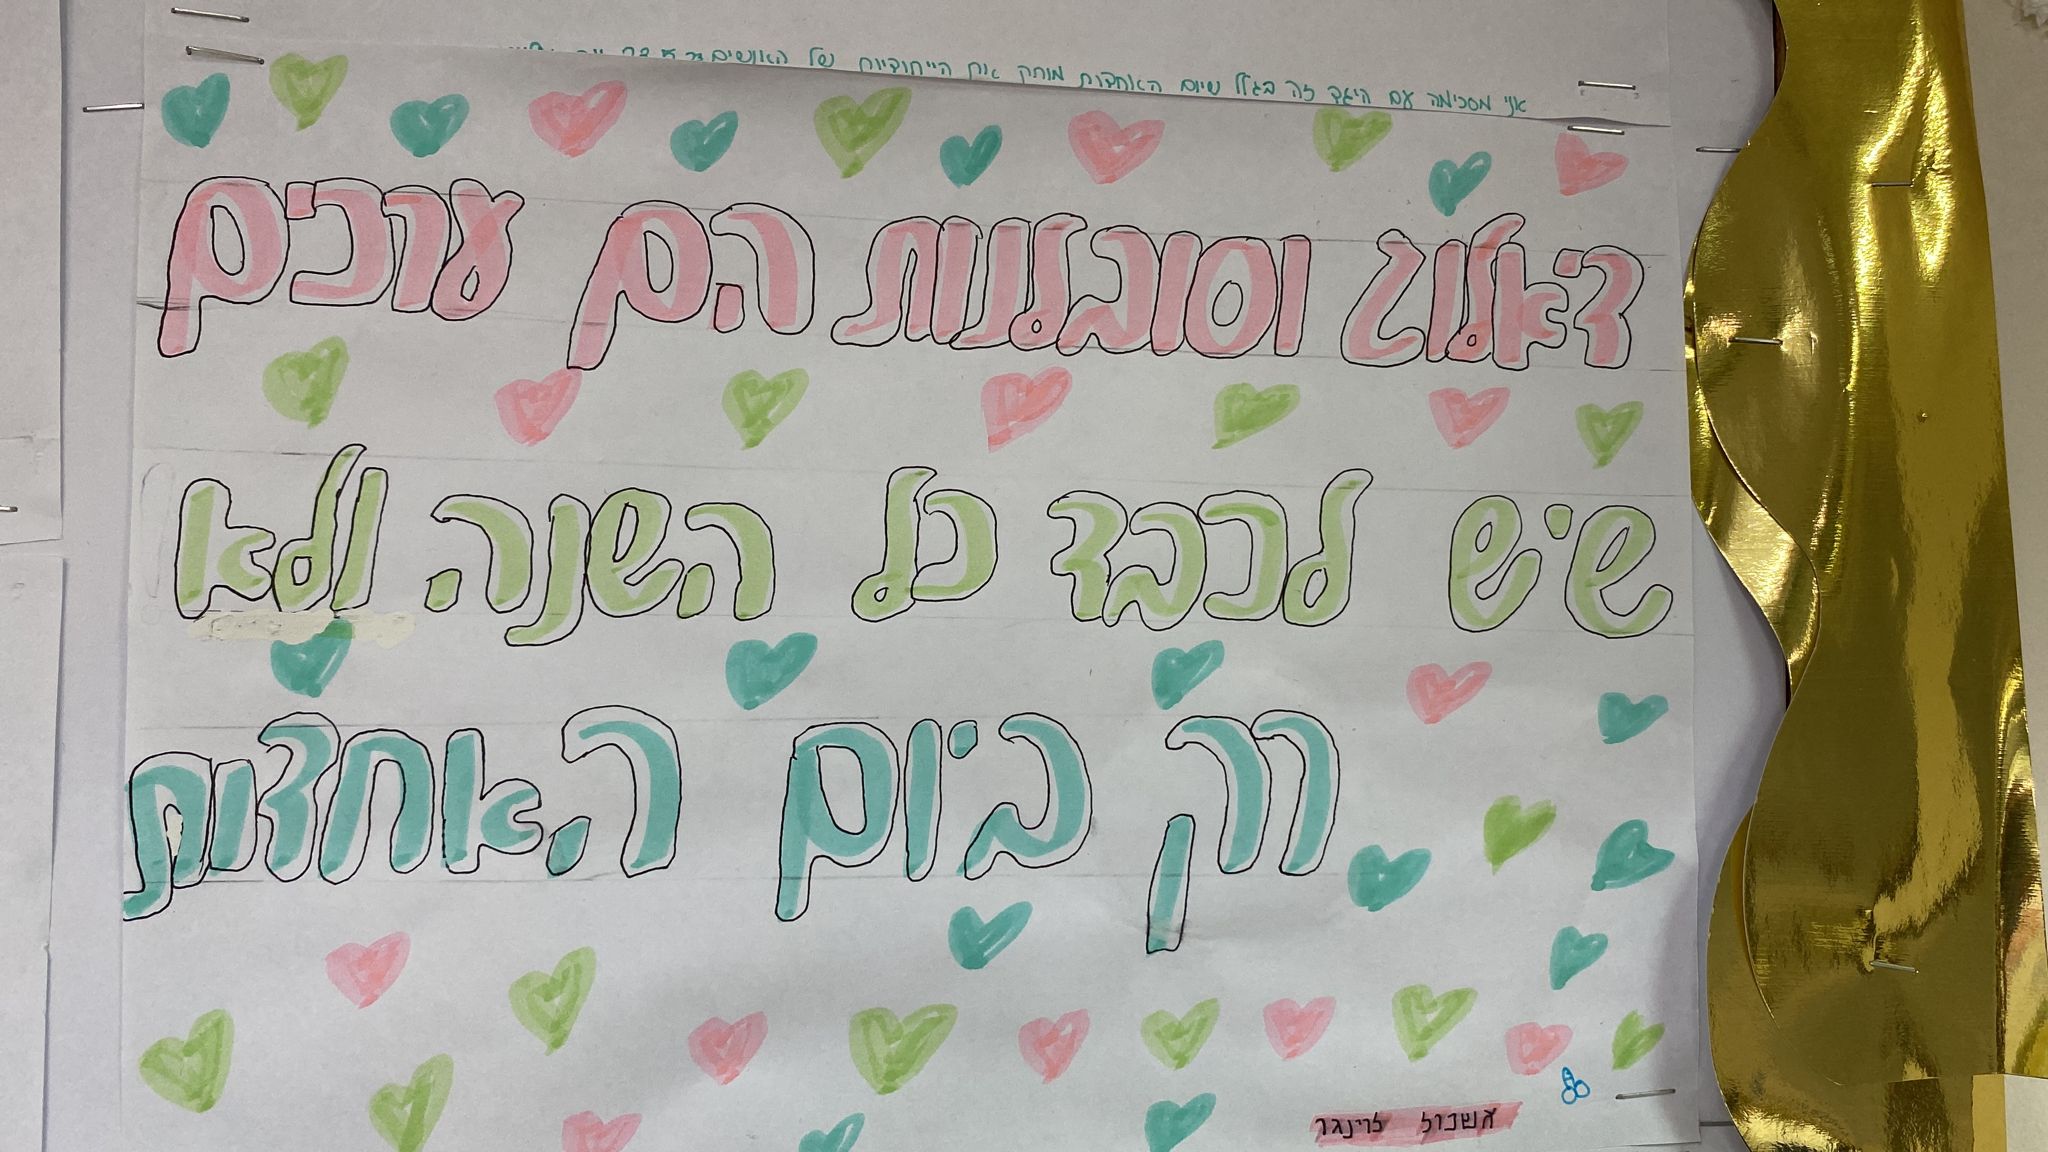 אני מסכימה עם היגד זה בגלל שיום האחדות מוחק את הייחודיות של האנשים
דיאלוג וסובלנות הם ערכים
שיש לכבד כל השנה ולא
רק ביום האחדות
אשכול